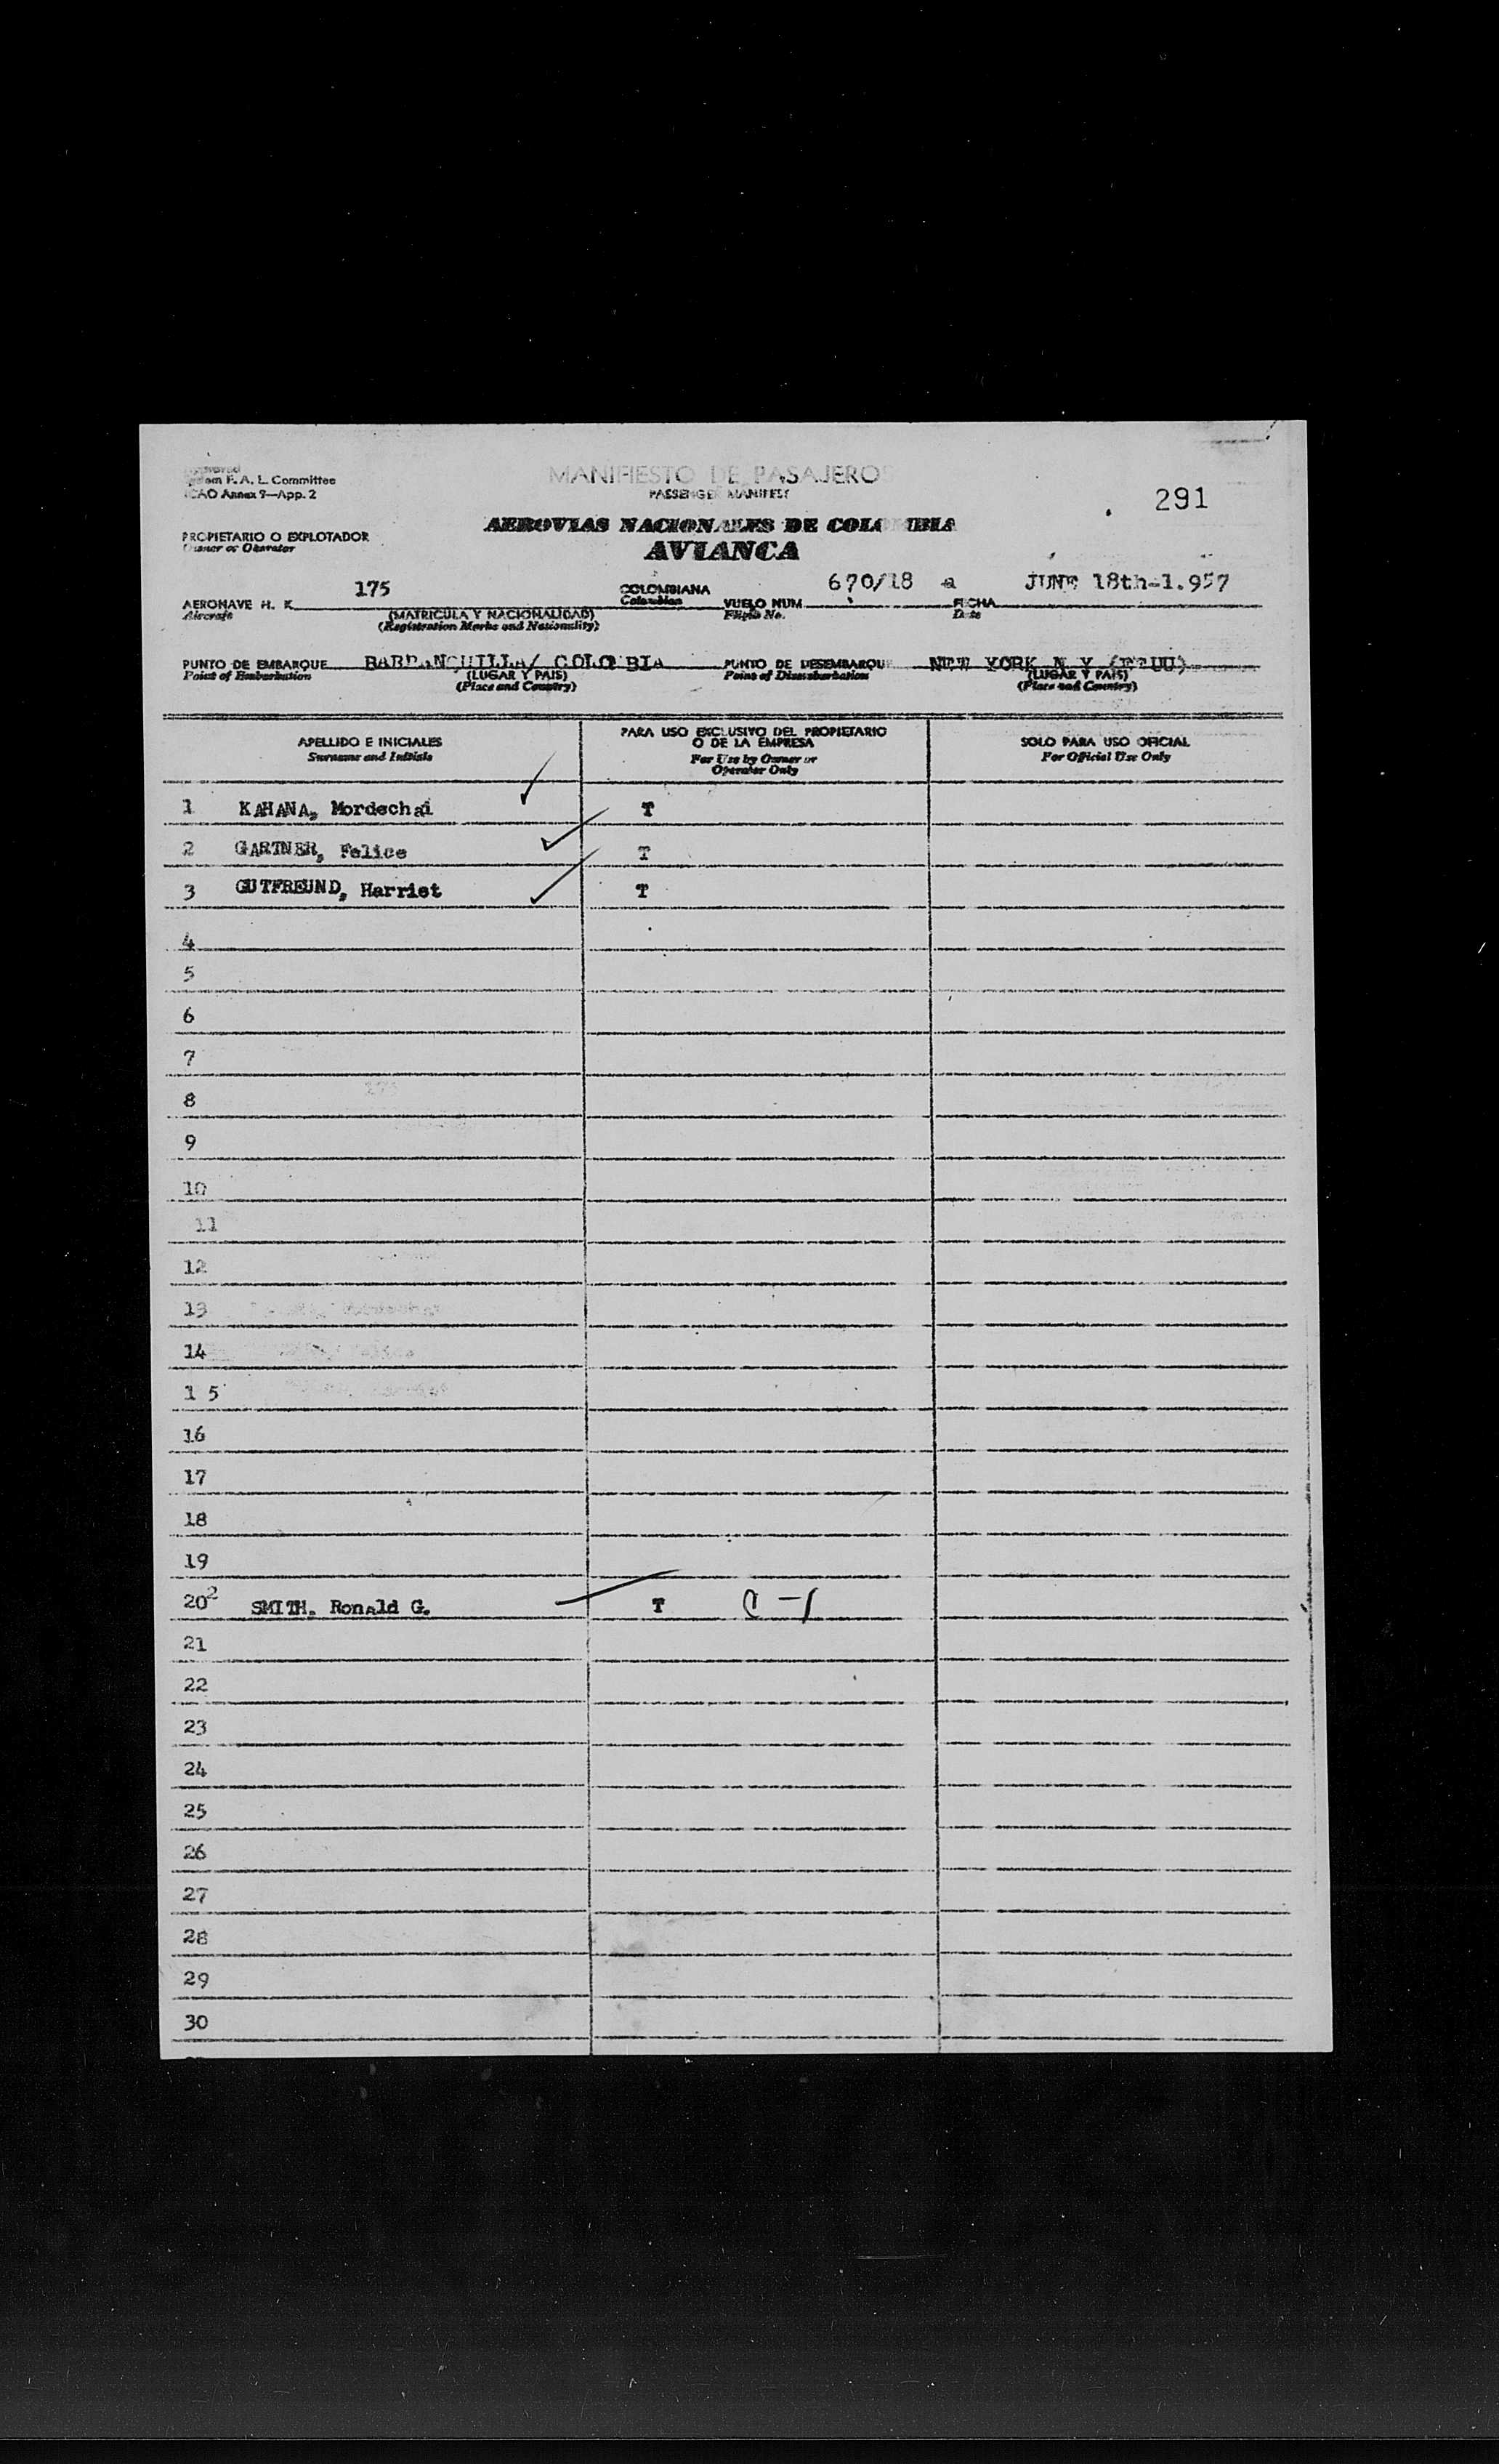 MANIFIESTO DE PASAJEROS
PASSENGER MANIFEST
F. A. L. Committee
ICAO Annex 9—App. 2
291
AEROVIAS NACIONALES DE COLOMBIA
AVIANCA
PROPIETARIO O EXPLOTADOR
Owner or Operator
AERONAVE H. K. 175 COLOMBIANA VUELO NUM 670/18 a FECHA JUNE 18th-1.957
Aircraft (MATRICULA Y NACIONALIDAD) Colombian Flight No. Date
(Registration Marks and Nationality)
PUNTO DE EMBARQUE BARRANQUILLA/ COLOMBIA PUNTO DE DESEMBARQUE NEW YORK N Y (EEUU)
Point of Embarkation (LUGAR Y PAIS) Point of Disembarkation (LUGAR Y PAIS)
(Place and Country) (Place and Country)
APELLIDO E INICIALES PARA USO EXCLUSIVO DEL PROPIETARIO O DE LA EMPRESA SOLO PARA USO OFICIAL
Surname and Initials For Use by Owner or Operator Only For Official Use Only
1 KAHANA, Mordechai T
2 GARTNER, Felice T
3 GUTFREUND, Harriet T
4
5
6
7
8
9
10
11
12
13
14
1 5
16
17
18
19
20 2 SMITH. Ronald G. T
21
22
23
24
25
26
27
28
29
30